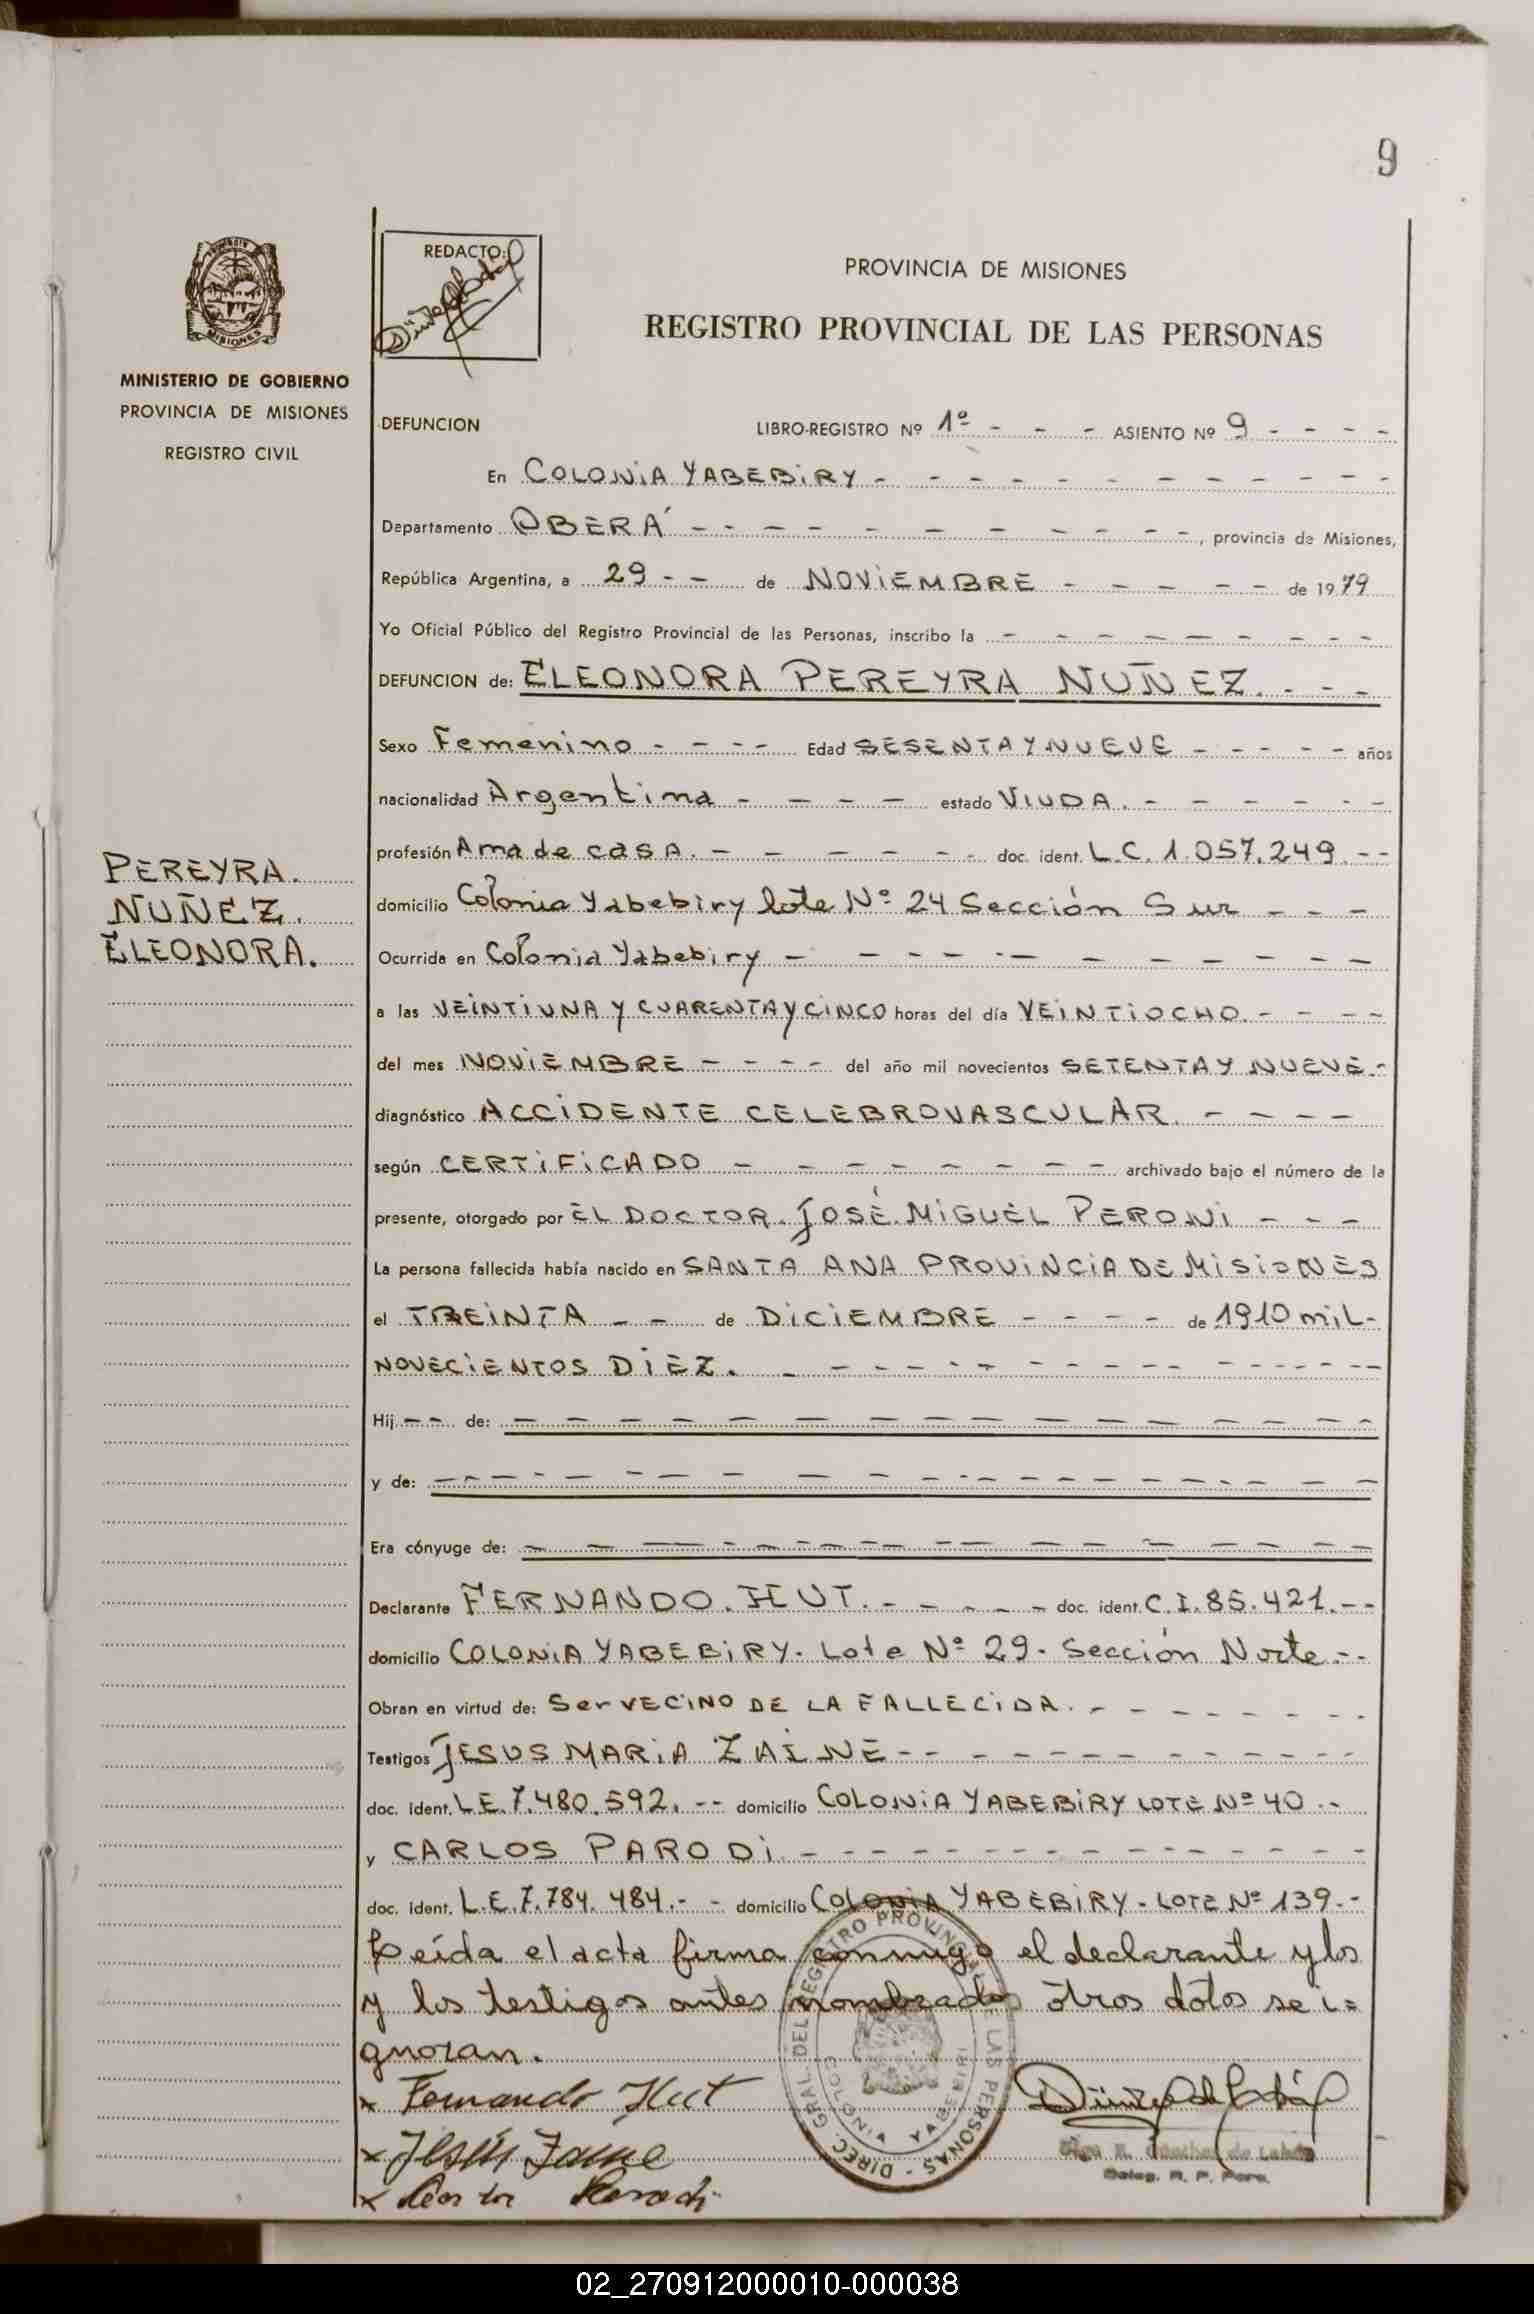 9
REDACTO:
PROVINCIA DE MISIONES
REGISTRO PROVINCIAL DE LAS PERSONAS
MISIONES
MINISTERIO DE GOBIERNO
PROVINCIA DE MISIONES
REGISTRO CIVIL
DEFUNCION LIBRO-REGISTRO Nº 1º - - - ASIENTO Nº 9 - - - -
En COLONIA YABEBIRY - - - - - - - - - - - -
Departamento OBERÁ - - - - - - - - - - - , provincia de Misiones,
República Argentina, a 29 - - de NOVIEMBRE - - - - - - de 1979
Yo Oficial Público del Registro Provincial de las Personas, inscribo la - - - - - - - - -
DEFUNCION de: ELEONORA PEREYRA NUÑEZ. - - -
Sexo Femenino - - - - Edad SESENTA Y NUEVE - - - - - años
nacionalidad Argentina - - - - estado VIUDA. - - - - - - -
profesión Ama de casa. - - - - - - - doc. ident. L.C. 1.057.249. - -
PEREYRA.
NUÑEZ.
ELEONORA.
domicilio Colonia Yabebiry lote Nº 24 Sección Sur - - -
Ocurrida en Colonia Yabebiry - - - - - - - - - - - -
a las VEINTIUNA Y CUARENTA Y CINCO horas del día VEINTIOCHO. - - - -
del mes NOVIEMBRE - - - - del año mil novecientos SETENTA Y NUEVE.-
diagnóstico ACCIDENTE CELEBROVASCULAR. - - - -
según CERTIFICADO - - - - - - - - - archivado bajo el número de la
presente, otorgado por EL DOCTOR. JOSÉ MIGUEL PERONI - - -
La persona fallecida había nacido en SANTA ANA PROVINCIA DE MISIONES
el TREINTA - - de DICIEMBRE - - - - de 1910 mil-
NOVECIENTOS DIEZ. - - - - - - - - - - - - - - - -
Hij - - de: - - - - - - - - - - - - - - - -
y de: - - - - - - - - - - - - - - - - - - -
Era cónyuge de: - - - - - - - - - - - - - - -
Declarante FERNANDO. HUT. - - - - - - doc. ident. C.I. 85.421. - -
domicilio COLONIA YABEBIRY. Lote Nº 29. Sección Norte. - -
Obran en virtud de: Ser VECINO DE LA FALLECIDA. - - - - - - - -
Testigos JESUS MARIA ZAINE - - - - - - - - - - - -
doc. ident. L.E. 7.480.592. - - domicilio COLONIA YABEBIRY LOTE Nº 40 - -
y CARLOS PARODI. - - - - - - - - - - - - - - - -
doc. ident. L.E. 7.784.484. - - domicilio COLONIA YABEBIRY - LOTE Nº 139. -
Leída el acta firma conmigo el declarante y los
y los testigos antes nombrados otros datos se i=
gnoran.
DIREC. GRAL. DEL REGISTRO PROVINCIAL DE LAS PERSONAS -
COLONIA YABEBIRI
x Fernando Hut
x Jesús Zaine
x Carlos Parodi
Deleg. R. P. Pers.
02_270912000010-000038